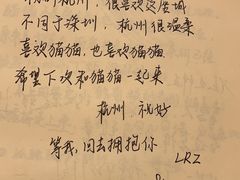 杭州，很喜欢这座城
不同于深圳，杭州很温柔
喜欢猫猫，也喜欢猫猫
希望下次和猫猫一起来
杭州 祝好
等我，回去拥抱你
LRZ